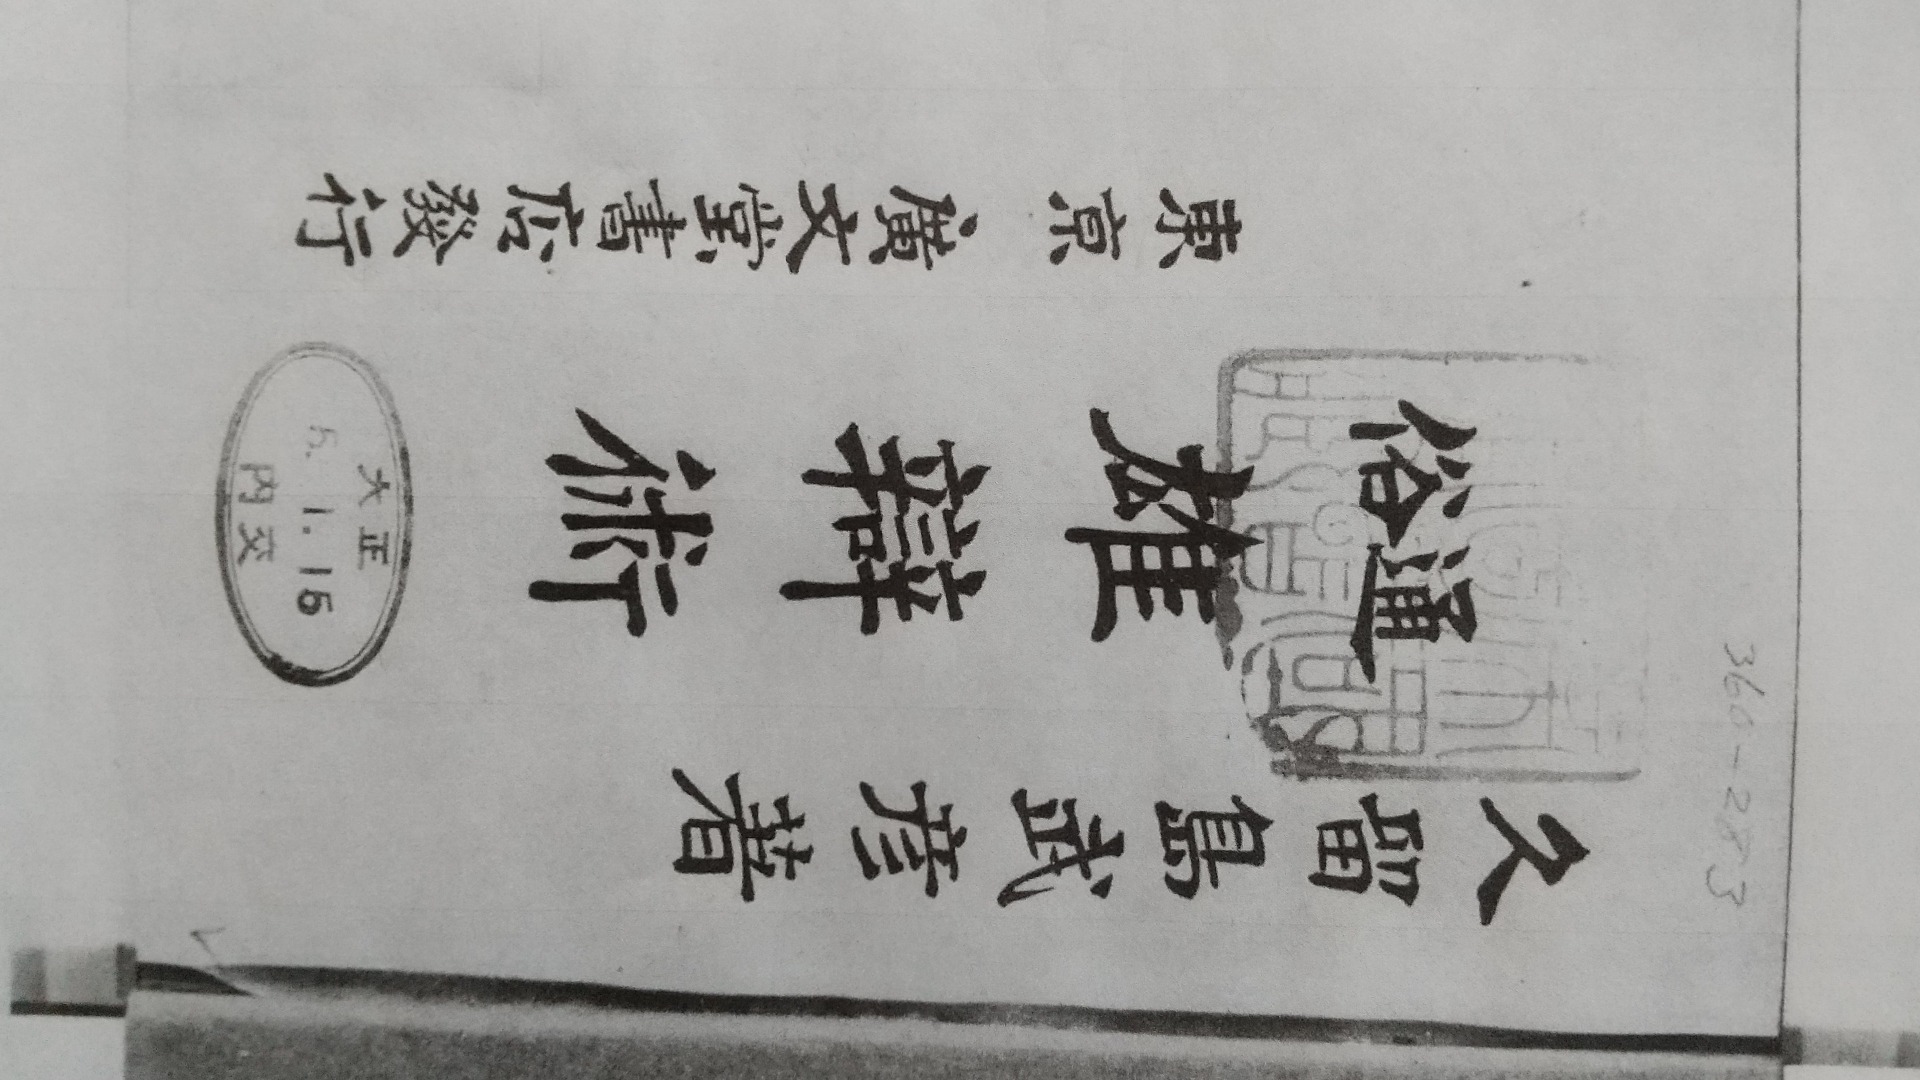 360-283
久留島武彦著
通俗
雄辯術
東京 廣文堂書店發行
大正
5.1.15
内交